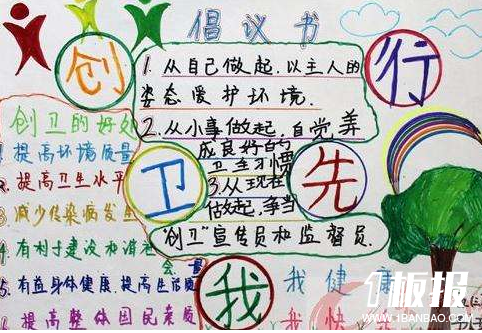 倡议书
创
行
1.从自己做起,以主人的
姿态爱护环境.
2.从小事做起,自觉养
成良好的
卫生习惯
3.从现在
做起,争当
"创卫"宣传员和监督员.
卫
先
我
创卫的好处
1.提高环境质量
2.提高卫生水平
3.减少传染病发生
4.有利于建设和谐社
会
5.有益身体健康,提高生活质
量
提高整体国民素质
我健康
我快乐
1板报
WWW.1BANBAO.COM